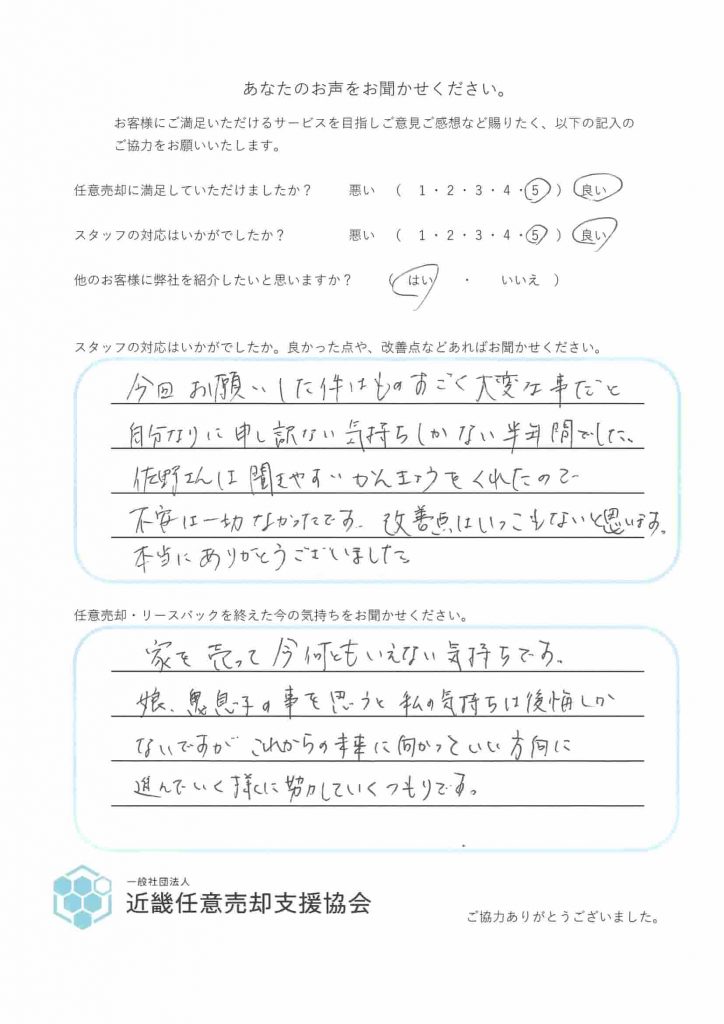 あなたのお声をお聞かせください。
お客様にご満足いただけるサービスを目指しご意見ご感想など賜りたく、以下の記入の
ご協力をお願いいたします。
任意売却に満足していただけましたか？ 悪い （ 1・2・3・4・5 ） 良い
スタッフの対応はいかがでしたか？ 悪い （ 1・2・3・4・5 ） 良い
他のお客様に弊社を紹介したいと思いますか？ （ はい ・ いいえ ）
スタッフの対応はいかがでしたか。良かった点や、改善点などあればお聞かせください。
今回お願いした件はものすごく大変な事だと
自分なりに申し訳ない気持ちしかない半年間でした。
佐野さんは聞きやすいかんきょうをくれたので
不安は一切なかったです。改善点はいっこもないと思います。
本当にありがとうございました。
任意売却・リースバックを終えた今の気持ちをお聞かせください。
家を売って今何ともいえない気持ちです。
娘、息子の事を思うと私の気持ちは後悔しか
ないですがこれからの未来に向かっていい方向に
進んでいく様に努力していくつもりです。
一般社団法人
近畿任意売却支援協会
ご協力ありがとうございました。